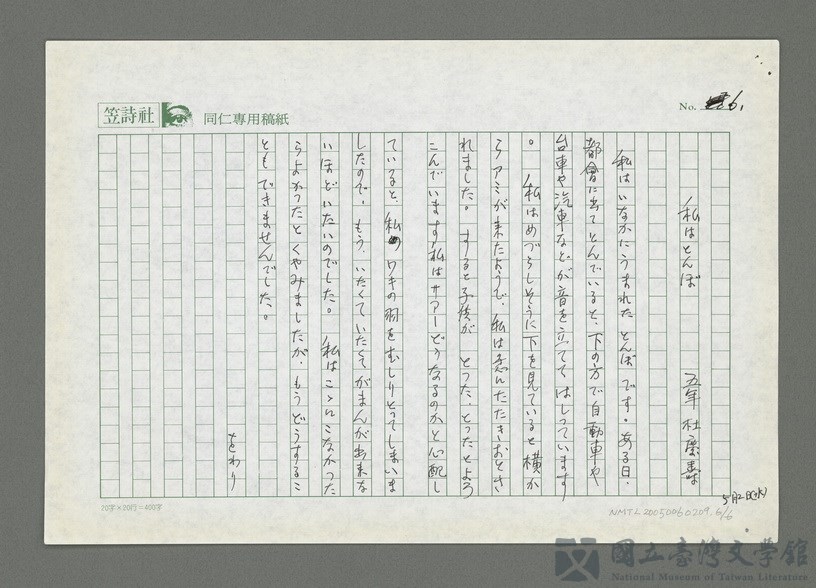 笠詩社
同仁專用稿紙
No. 6.
私はとんぼ
五年 杜慶壽
私はいなかにうまれたとんぼです。ある日、
都會に出てとんでいると、下の方で自動車や
台車や汽車などが音を立ててはしっています
。 私はめづらしそうに下を見ていると横か
らアミが来たようで、私は急にたたきおとさ
れました。 すると子供が とった、とったとよろ
こんでいます私はサアーどうなるのかと心配し
ていると、私の ワキの羽をむしりとってしまいま
したので、もう、いたくていたくてがまんが出来な
いほどいたいのでした。 私はこゝにこなかった
らよかったとくやみましたが、もうどうするこ
ともできませんでした。
をわり
5月2日(水)
20字×20行=400字
NMTL20050060209.6/6
國立臺灣文學館
National Museum of Taiwan Literature